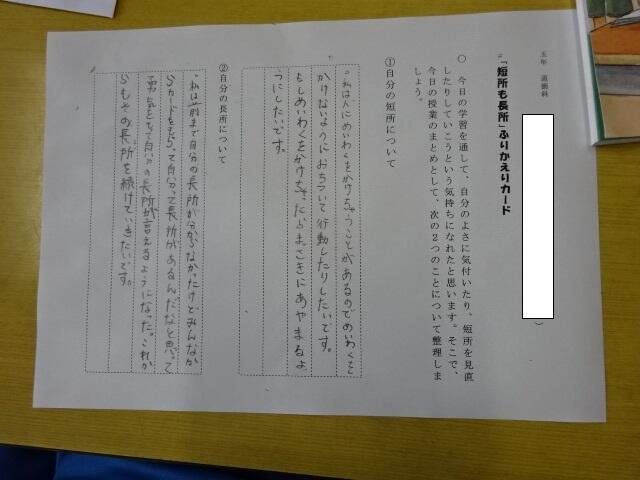 五年 道徳科
「短所も長所」ふりかえりカード
)
○ 今日の学習を通して、自分のよさに気付いたり、短所を見直
したりしていこうという気持ちになれたと思います。そこで、
今日の授業のまとめとして、次の２つのことについて整理しま
しょう。
①自分の短所について
私は人にめいわくをかけちゃうことがあるのでめいわくを
かけないようにおちついて行動したりしたいです。
もしめいわくをかけちゃったらまっさきにあやまるよ
うにしたいです。
②自分の長所について
私は前まで自分の長所が分からなかったけどみんなか
らカードをもらって自分って長所があるんだなと思って
勇気をもって自分の長所が言えるようになった。これか
らもその長所を続けていきたいです。